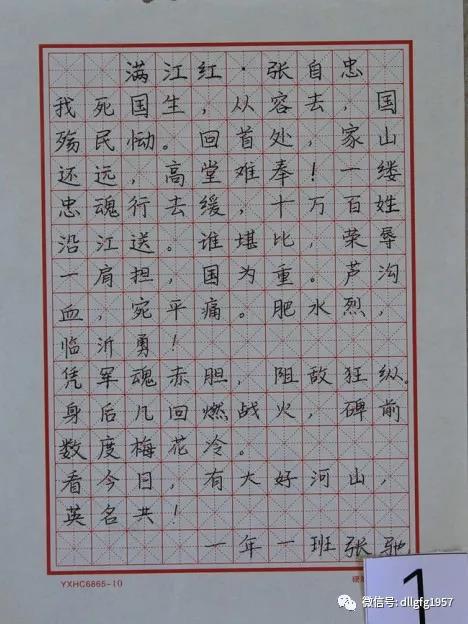 满江红·张自忠
我死国生，从容去，国
殇民恸。回首处，家山
还远，高堂难奉！一缕
忠魂行去缓，十万百姓
沿江送。谁堪比，荣辱
一肩担，国为重。芦沟
血，宛平痛。肥水烈，
临沂勇！
凭军魂赤胆，阻敌狂纵。
身后几回燃战火，碑前
数度梅花冷。
看今日，有大好河山，
英名共！
一年一班张驰
YXHC6865-10
1
微信号: dllgfg1957